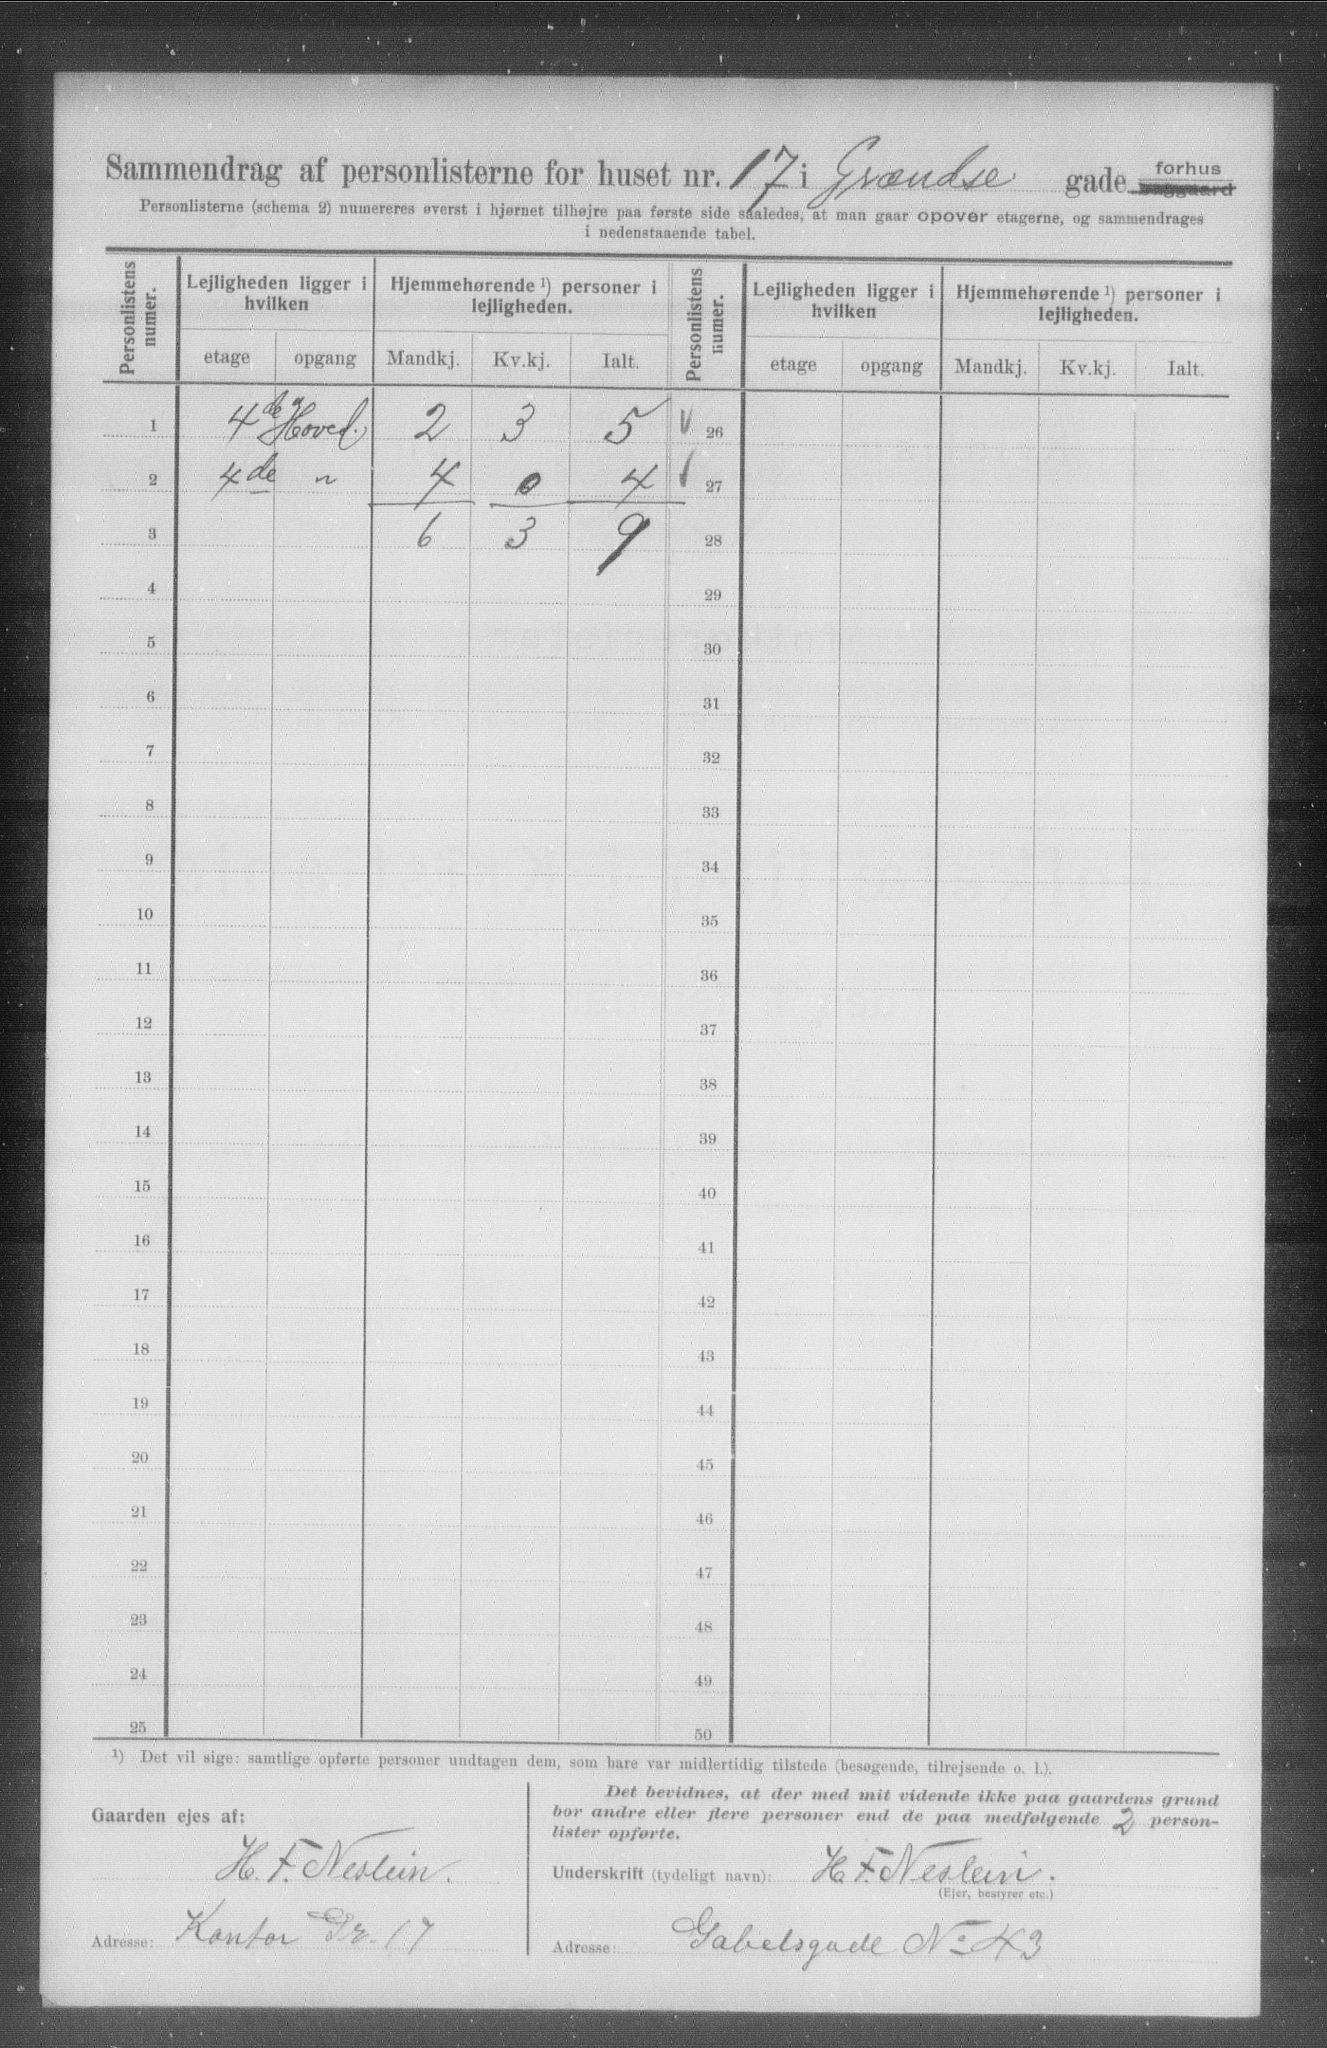 Sammendrag af personlisterne for huset nr. 17 i Grændse gade forhus baggaard
Personlisterne (schema 2) numereres øverst i hjørnet tilhøjre paa første side saaledes, at man gaar opover etagerne, og sammendrages
i nedenstaaende tabel.
Personlistens numer. Lejligheden ligger i hvilken Hjemmehørende ¹) personer i lejligheden. Personlistens numer. Lejligheden ligger i hvilken Hjemmehørende ¹) personer i lejligheden.
etage opgang Mandkj. Kv.kj. Ialt. etage opgang Mandkj. Kv.kj. Ialt.
1 4de Hoved. 2 3 5 26
2 4de " 4 0 4 27
3 6 3 9 28
4 29
5 30
6 31
7 32
8 33
9 34
10 35
11 36
12 37
13 38
14 39
15 40
16 41
17 42
18 43
19 44
20 45
21 46
22 47
23 48
24 49
25 50
¹) Det vil sige: samtlige opførte personer undtagen dem, som bare var midlertidig tilstede (besøgende, tilrejsende o. l.).
Gaarden ejes af:
H. F. Neslein.
Adresse: Kontor Gr. 17
Det bevidnes, at der med mit vidende ikke paa gaardens grund
bor andre eller flere personer end de paa medfølgende 2 person-
lister opførte.
Underskrift (tydeligt navn): H. F. Neslein.
(Ejer, bestyrer etc.)
Adresse: Gabelsgade No 43